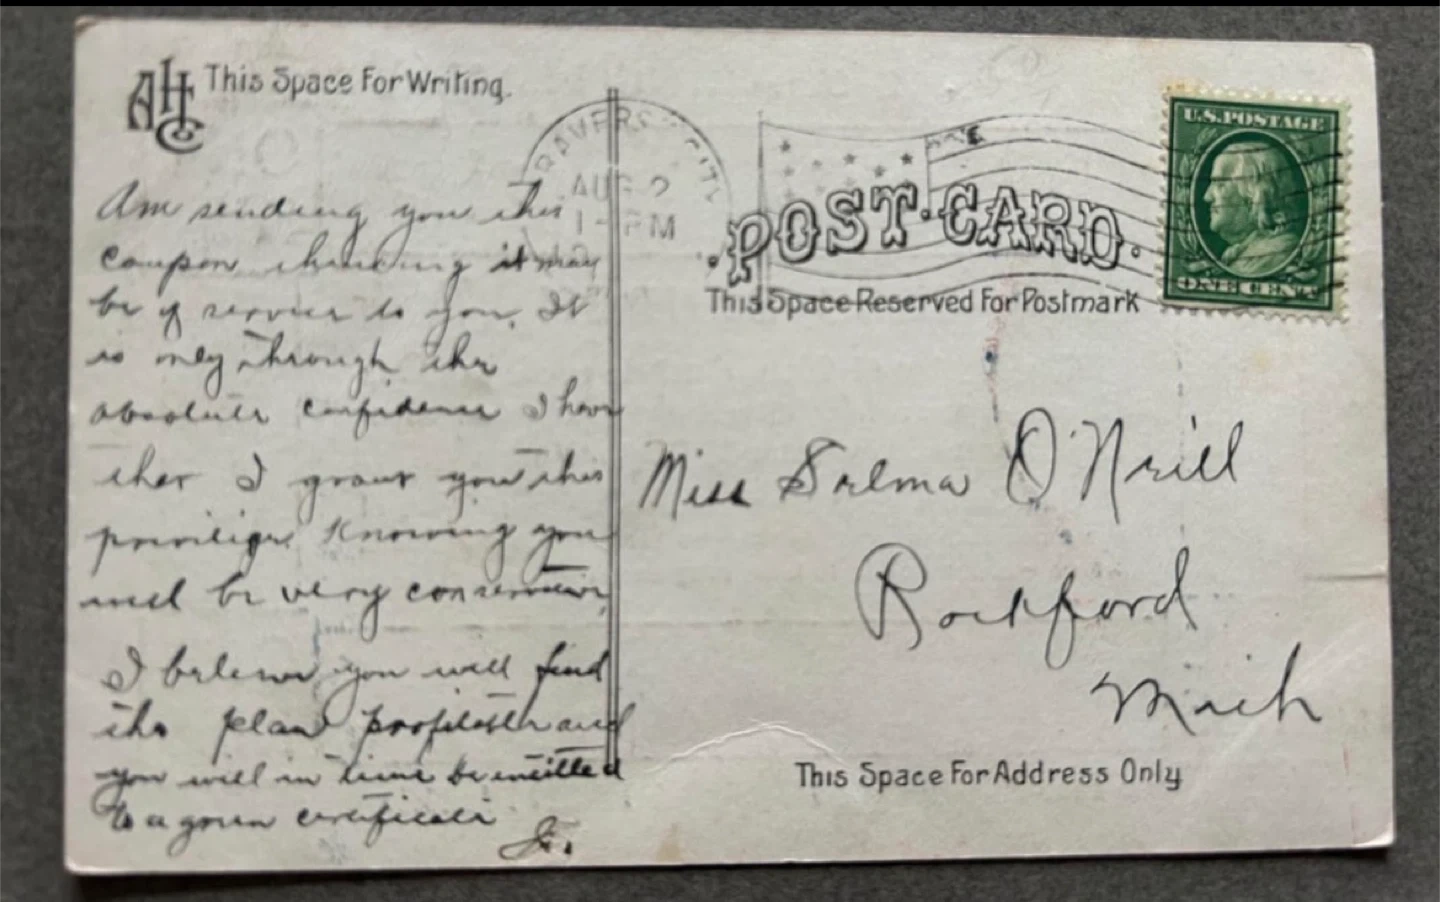 AHC
Co
This Space For Writing.
TRAVERSE CITY
AUG 2
1 - PM
U.S. POSTAGE
ONE CENT
POST-CARD.
This Space Reserved For Postmark
Am sending you this
coupon thinking it may
be of service to you. It
is only through the
absolute confidence I have
that I grant you this
privilige. Knowing you
will be very conservative,
I believe you will find
the plan profitable and
you will in time be entitled
to a certificate
Miss Selma O'Neill
Rockford
Mich
This Space For Address Only